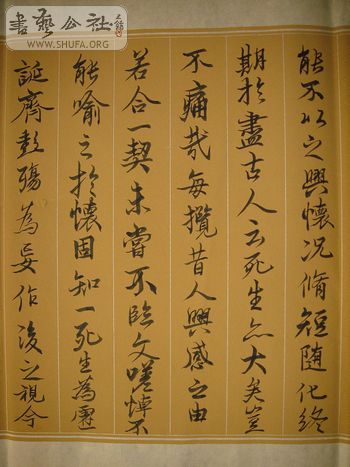 書藝公社
WWW.SHUFA.ORG
能不以之興懷況脩短隨化終
期於盡古人云死生亦大矣豈
不痛哉每攬昔人興感之由
若合一契未嘗不臨文嗟悼不
能喻之於懷固知一死生為虛
誕齊彭殤為妄作後之視今